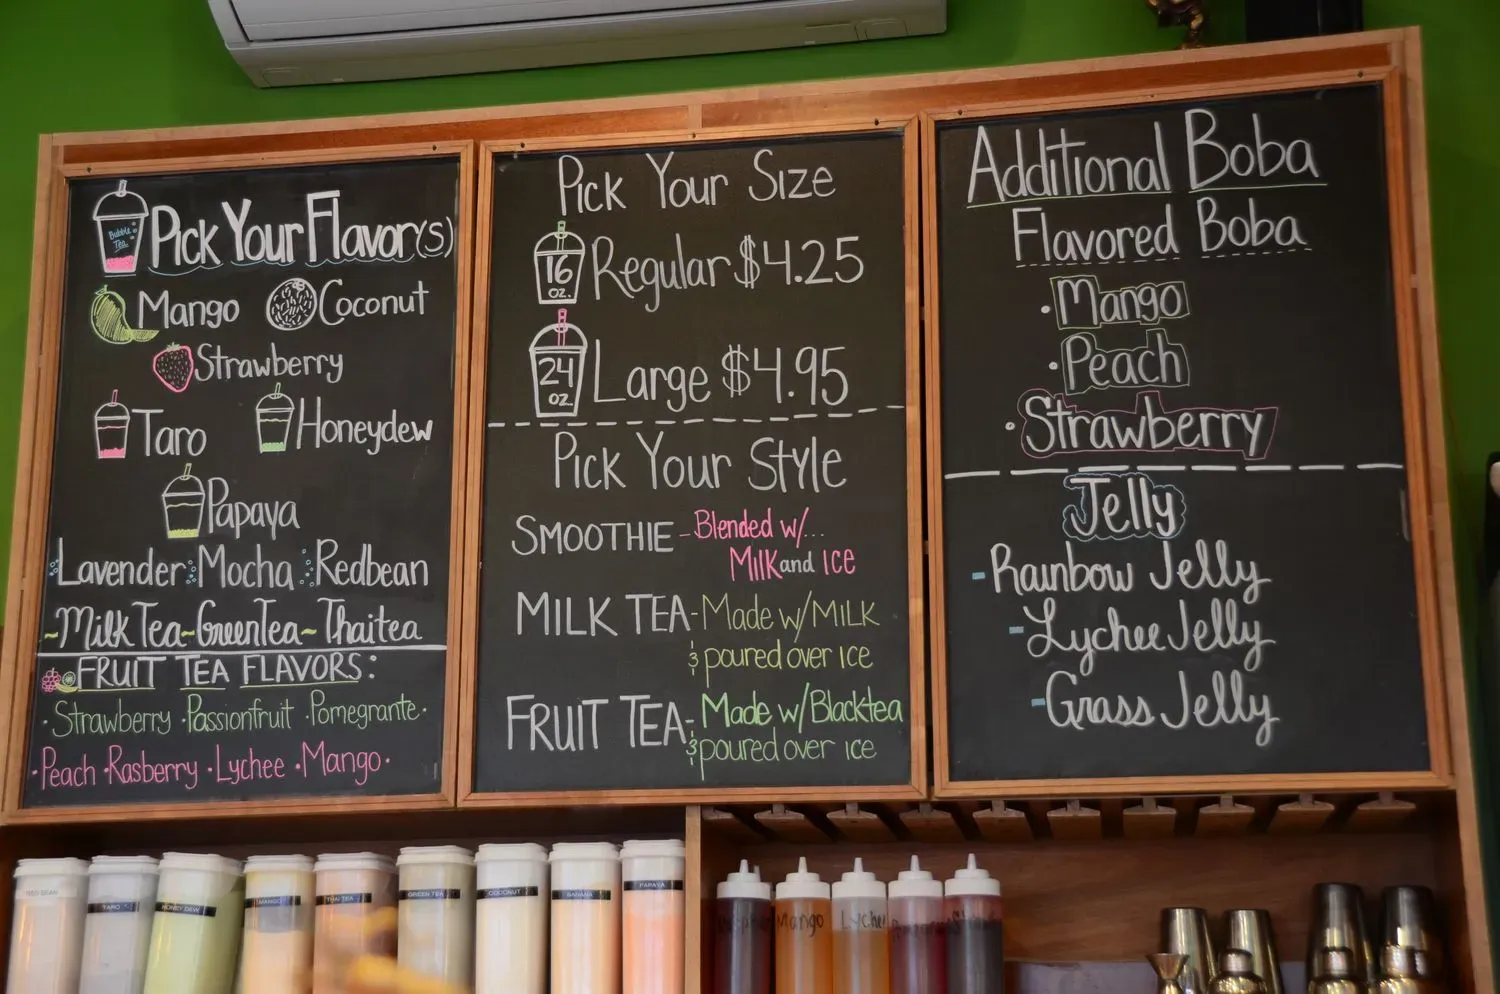 Bubble
Tea
Pick Your Flavor(s)
Mango Coconut
Strawberry
Taro Honeydew
Papaya
Lavender Mocha Redbean
~Milk Tea~Green Tea~Thai tea
FRUIT TEA FLAVORS:
·Strawberry ·Passionfruit ·Pomegrante·
·Peach ·Rasberry ·Lychee ·Mango·
Pick Your Size
16 oz. Regular $4.25
24 oz. Large $4.95
Pick Your Style
SMOOTHIE - Blended w/...
Milk and ICE
MILK TEA - Made w/MILK
& poured over ICE
FRUIT TEA - Made w/Blacktea
& poured over ice
Additional Boba
Flavored Boba
·Mango
·Peach
·Strawberry
Jelly
-Rainbow Jelly
-Lychee Jelly
-Grass Jelly
RED BEAN
TARO
HONEY DEW
MANGO
THAI TEA
GREEN TEA
COCONUT
BANANA
PAPAYA
Mango
Lychee